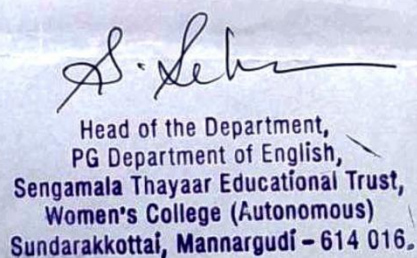 Head of the Department,
PG Department of English,
Sengamala Thayaar Educational Trust,
Women's College (Autonomous)
Sundarakkottai, Mannargudi – 614 016.